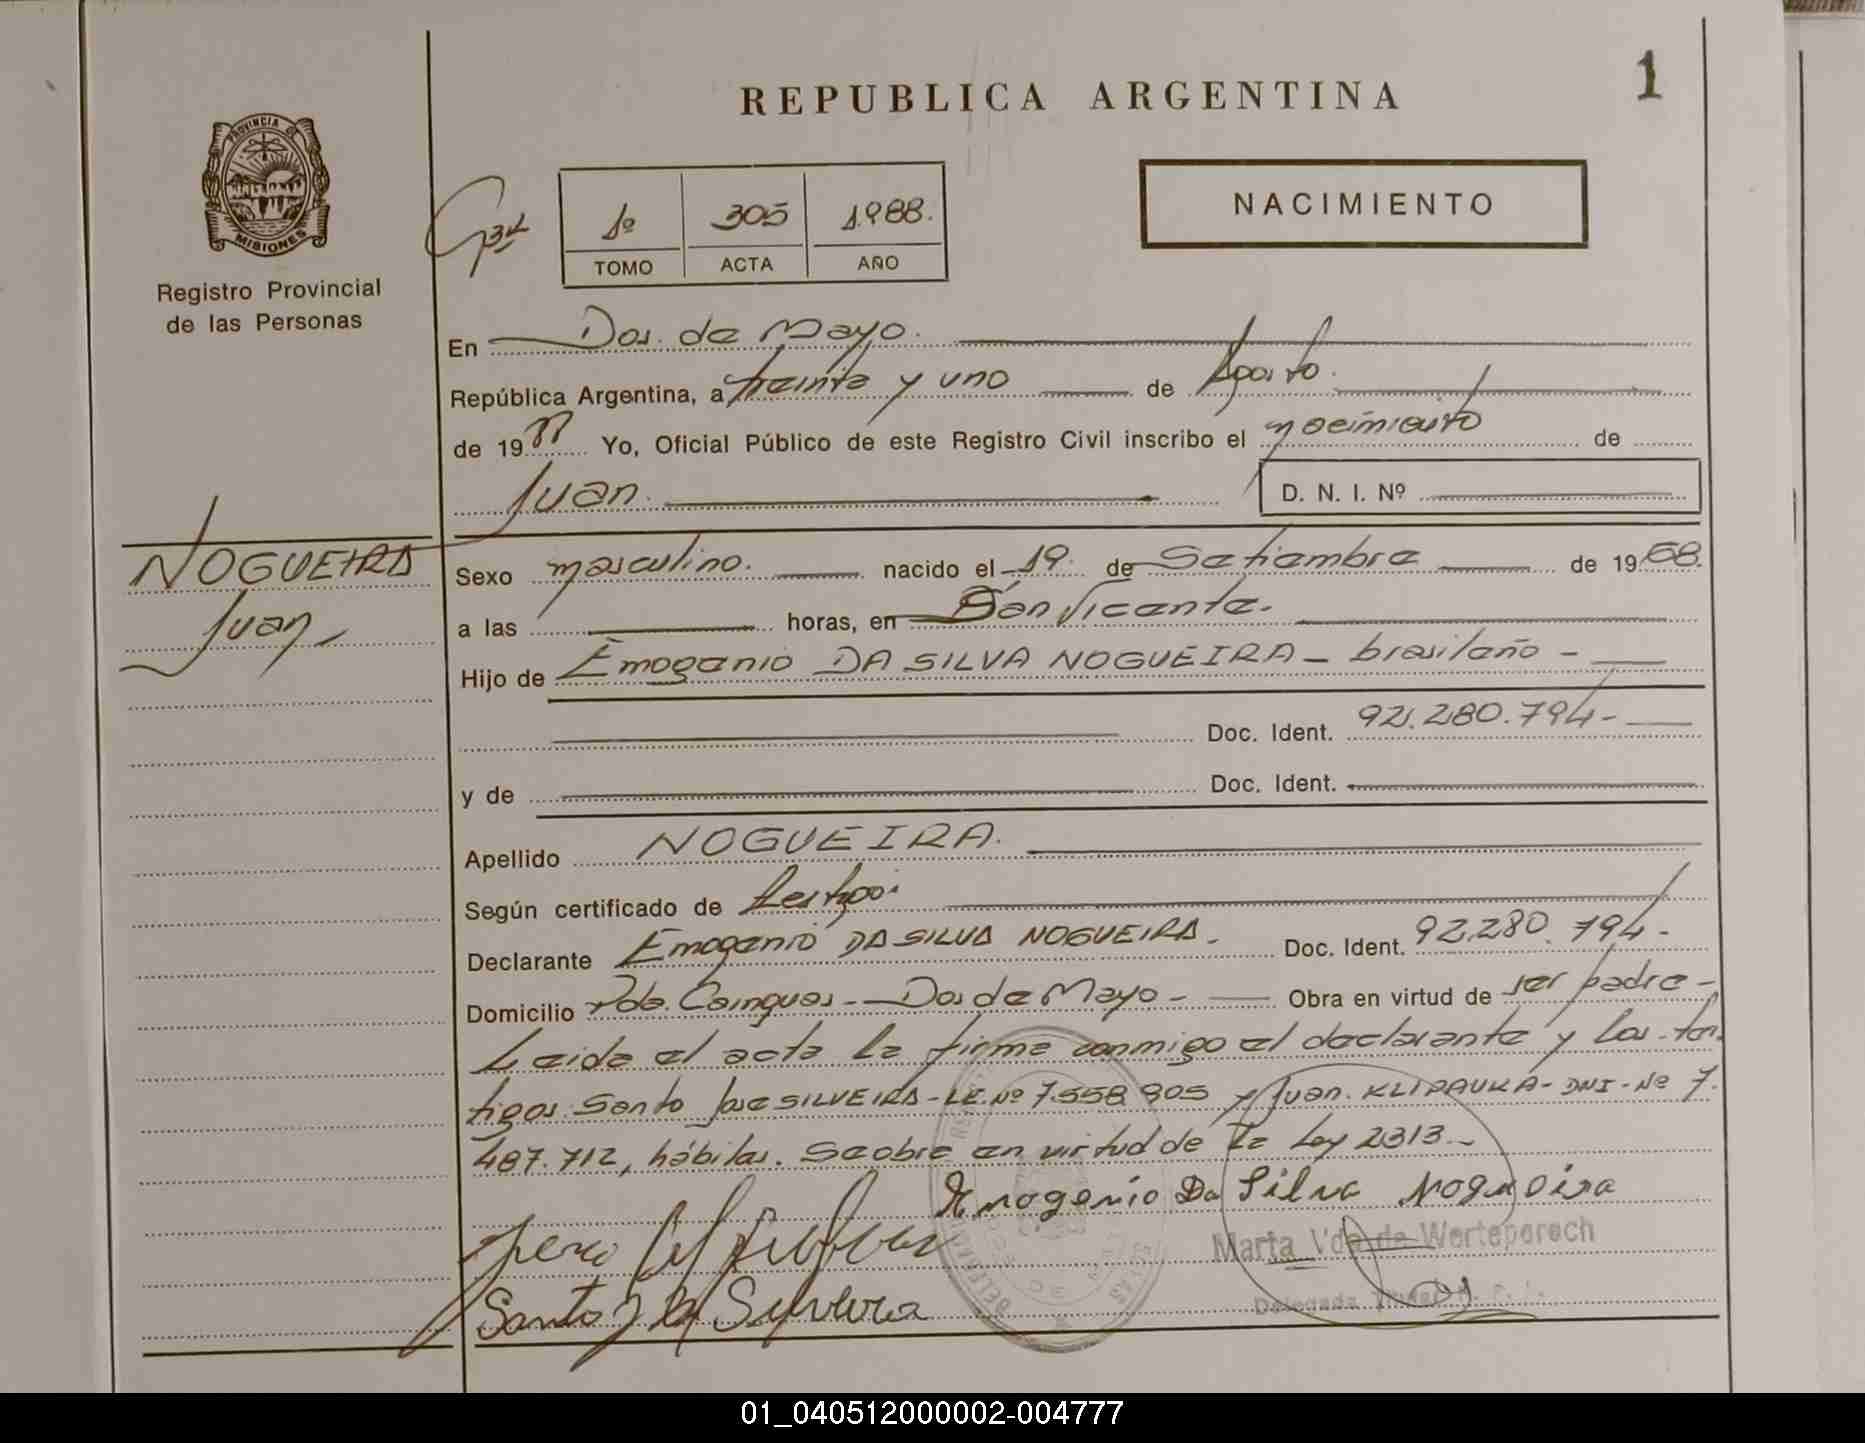 REPUBLICA ARGENTINA
1
PROVINCIA DE
MISIONES
Registro Provincial
de las Personas
1º 305 1.988.
TOMO ACTA AÑO
NACIMIENTO
En Dos de Mayo.
República Argentina, a treinta y uno de Agosto.
de 1988 Yo, Oficial Público de este Registro Civil inscribo el nacimiento de
Juan. D. N. I. Nº
NOGUEIRA
Juan
Sexo masculino. nacido el 19 de Setiembre de 1968.
a las horas, en San Vicente.
Hijo de Emogenio DA SILVA NOGUEIRA - brasileño -
Doc. Ident. 92.280.794-
y de Doc. Ident.
Apellido NOGUEIRA.
Según certificado de testigos.
Declarante Emogenio DA SILVA NOGUEIRA. Doc. Ident. 92.280.794-
Domicilio Pdo. Cainguas - Dos de Mayo - Obra en virtud de ser padre -
Leida el acta la firma conmigo el declarante y los tes
tigos Santo José SILVEIRA - LE. Nº 7.558.905 y Juan KLIPAUKA - DNI - Nº 7.
487.712, hábiles. Se obre en virtud de la Ley 2313.-
Emogenio Da Silva Nogueira
Marta Vda de Werteperech
Delegada
Santo J Silveira
01_040512000002-004777